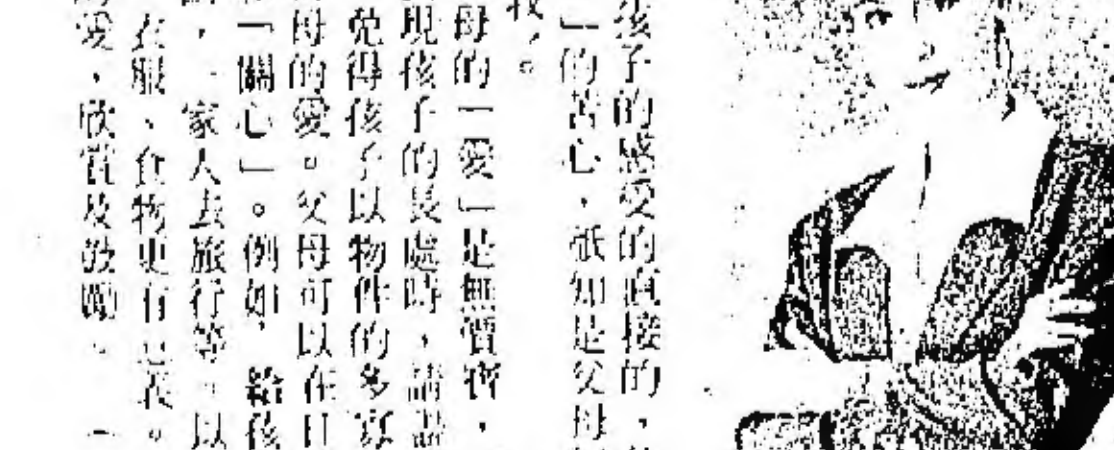 孩子的感受的直接的，
」的苦心，祇知是父母
我。
母的「愛」是無價寶，
現孩子的長處時，請盡
免得孩子以物件的多寡
母的愛。父母可以在日
「關心」。例如，給孩
，一家人去旅行等。以
衣服、食物更有意義。
愛，欣賞及鼓勵。